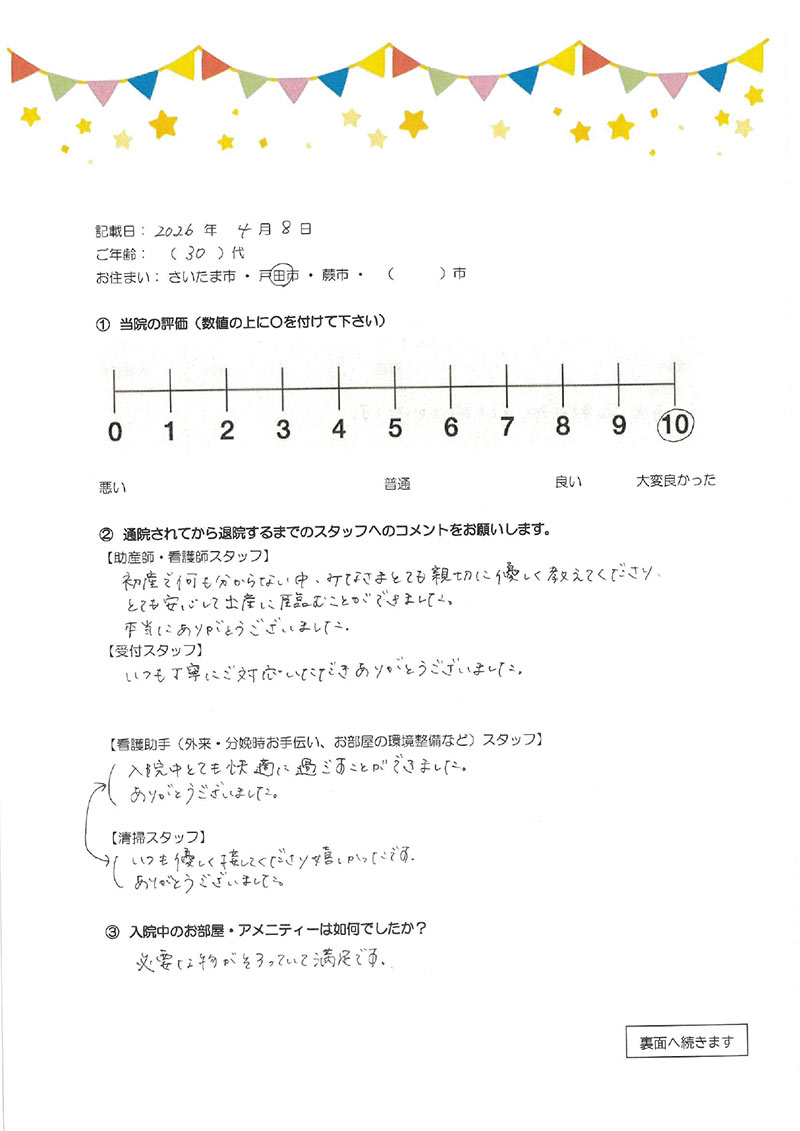 記載日： 2026 年 4 月 8 日
ご年齢： （ 30 ）代
お住まい： さいたま市 ・ 戸田市 ・ 蕨市 ・ （ ）市
① 当院の評価（数値の上に〇を付けて下さい）
0 1 2 3 4 5 6 7 8 9 10
悪い 普通 良い 大変良かった
② 通院されてから退院するまでのスタッフへのコメントをお願いします。
【助産師・看護師スタッフ】
初産で何も分からない中、みなさまとても親切に優しく教えてくださり、
とても安心して出産に臨むことができました。
本当にありがとうございました。
【受付スタッフ】
いつも丁寧にご対応いただきありがとうございました。
【看護助手（外来・分娩時お手伝い、お部屋の環境整備など）スタッフ】
入院中とても快適に過ごすことができました。
ありがとうございました。
【清掃スタッフ】
いつも優しく接してくださり嬉しかったです。
ありがとうございました。
③ 入院中のお部屋・アメニティーは如何でしたか？
必要な物がそろっていて満足です。
裏面へ続きます